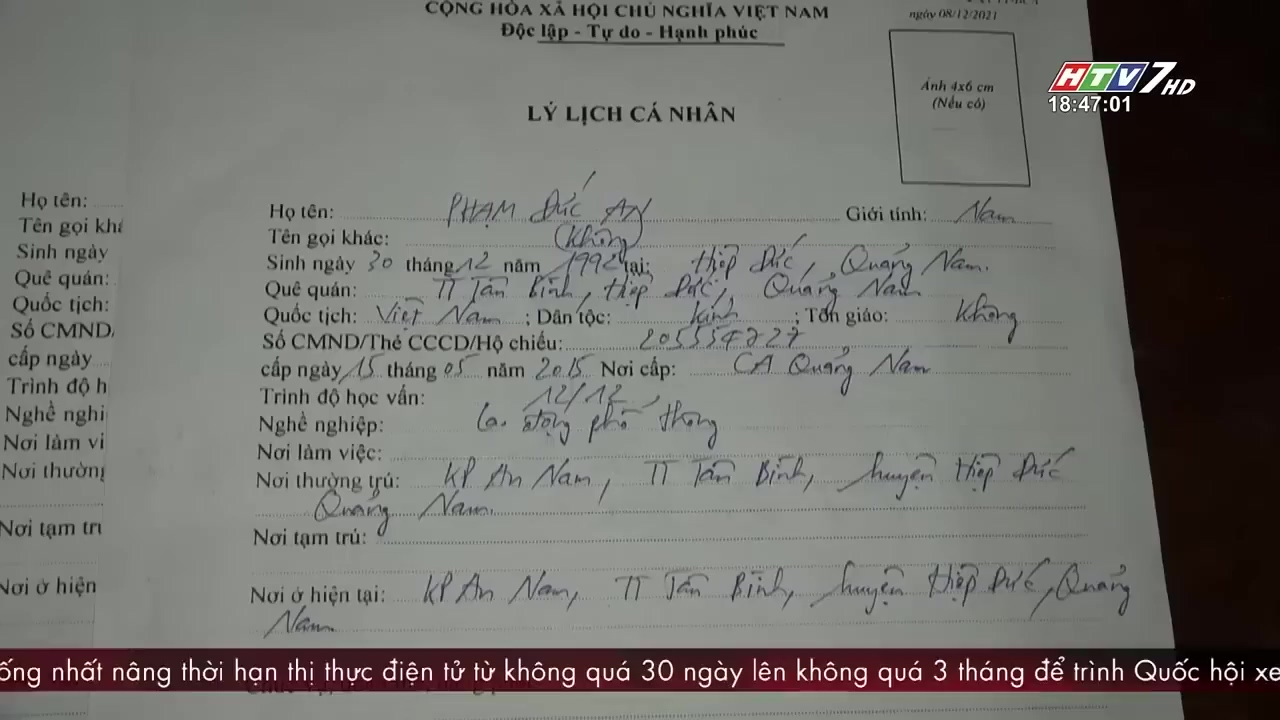 CỘNG HÒA XÃ HỘI CHỦ NGHĨA VIỆT NAM
Độc lập - Tự do - Hạnh phúc
ngày 08/12/2021
Ảnh 4x6 cm
(Nếu có)
HTV7 HD
18:47:01
LÝ LỊCH CÁ NHÂN
Họ tên: PHẠM ĐỨC AN Giới tính: Nam
Tên gọi khác: (Không)
Sinh ngày 30 tháng 12 năm 1992 tại: Hiệp Đức, Quảng Nam.
Quê quán: TT Tân Bình, Hiệp Đức, Quảng Nam
Quốc tịch: Việt Nam ; Dân tộc: Kinh ; Tôn giáo: Không
Số CMND/Thẻ CCCD/Hộ chiếu:
cấp ngày 15 tháng 05 năm 2015 Nơi cấp: CA Quảng Nam
Trình độ học vấn: 12/12
Nghề nghiệp: Lao động phổ thông
Nơi làm việc:
Nơi thường trú: KP An Nam, TT Tân Bình, huyện Hiệp Đức
Quảng Nam.
Nơi tạm trú:
Nơi ở hiện tại: KP An Nam, TT Tân Bình, huyện Hiệp Đức, Quảng
Nam
Họ tên:
Tên gọi
Sinh ngày
Quê quán:
Quốc tịch:
Số CMND/
cấp ngày
Trình độ h
Nghề nghi
Nơi làm vi
Nơi thường
Nơi tạm trú
Nơi ở hiện
ống nhất nâng thời hạn thị thực điện tử từ không quá 30 ngày lên không quá 3 tháng để trình Quốc hội xe